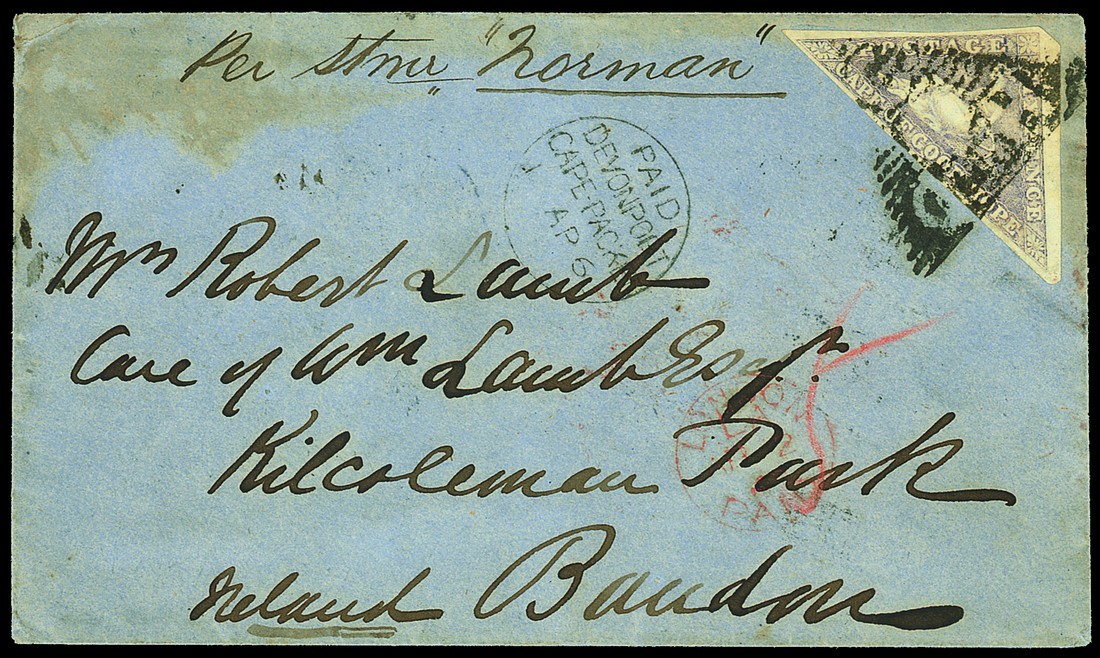 Per Stmr "Norman"
POSTAGE
CAPE OF GOOD HOPE
PAID
DEVONPORT
CAPE-PACKET
AP 6
Mrs Robert Lamb
Care of Wm Lamb Esqr.
Kilcoleman Park
LONDON
PAID
5
Ireland Bandon